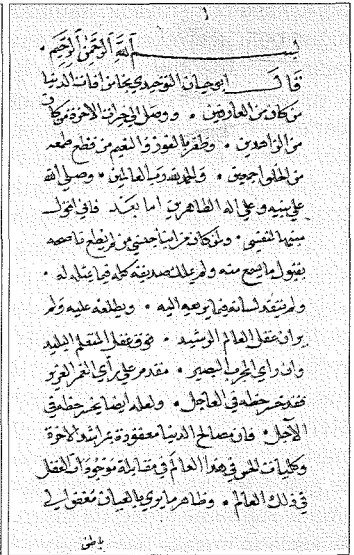 ١
بسم الله الرحمن الرحيم .
قال ابو حيان التوحيدي نجا من افات الدنيا
من كان من العارفين . ووصل الى خيرات الاخرة من كان
من الزاهدين . وظفر بالفوز والنعيم من قطع طمعه
من الخلق اجمعين . والحمد لله رب العالمين . وصلى الله
على نبيه وعلى اله الطاهرين اما بعد فاني اقول
منبها لنفسي . ولمن كان من ابناء جنسي من لم يطع ناصحه
بقبول ما يسمع منه ولم يملك صديقه كله فيما يمثله له .
ولم ينقد لبيانه فيما يريغه اليه . ويطلعه عليه ولم
ير ان عقل العالم الرشيد . فوق عقل المتعلم البليد
وان راي المجرب البصير . مقدم على راي الغمر الغرير
فقد خسر حظه في العاجل . ولعله ايضا يخسر حظه في
الآجل . فان مصالح الدنيا معقودة بمراشد الاخرة
وكليات الحس في هذا العالم في مقابلة موجودات العقل
في ذلك العالم . وظاهر ما يرى بالعيان مفض الى
باطن